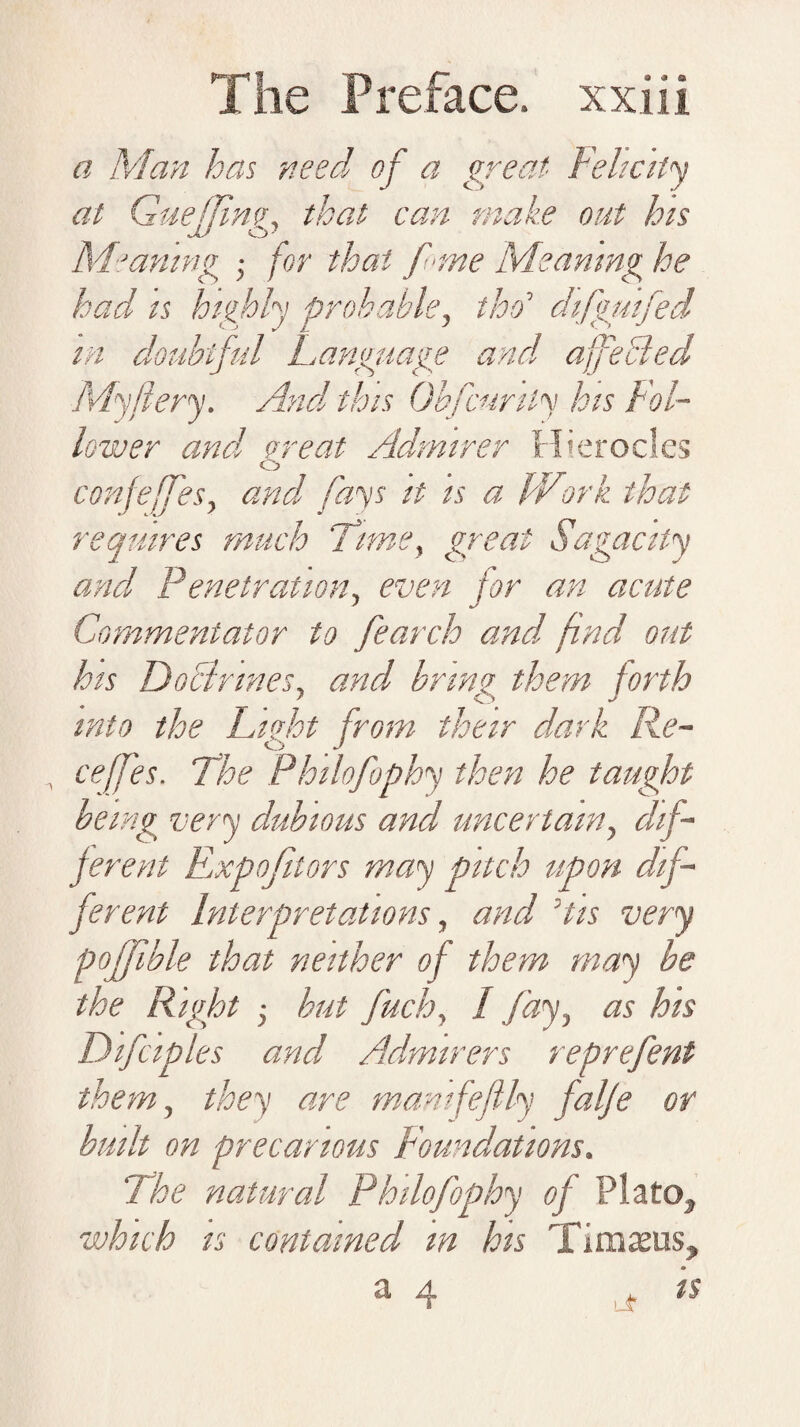 The Preface. xxiii
a Man has need of a great Felicity
at Gueſſing, that can make out his
Meaning ; for that ſome Meaning he
had is highly probable, tho' diſguiſed
in doubtful Language and affected
Myſtery. And this Obſcurity his Fol-
lower and great Admirer Hierocles
confeſſes, and ſays it is a Work that
requires much Time, great Sagacity
and Penetration, even for an acute
Commentator to ſearch and find out
his Doctrines, and bring them forth
into the Light from their dark Re-
ceſſes. The Philoſophy then he taught
being very dubious and uncertain, dif-
ferent Expoſitors may pitch upon dif-
ferent Interpretations, and 'tis very
poſſible that neither of them may be
the Right ; but ſuch, I ſay, as his
Diſciples and Admirers repreſent
them, they are manifeſtly falſe or
built on precarious Foundations.
The natural Philoſophy of Plato,
which is contained in his Timæus,
a 4 is